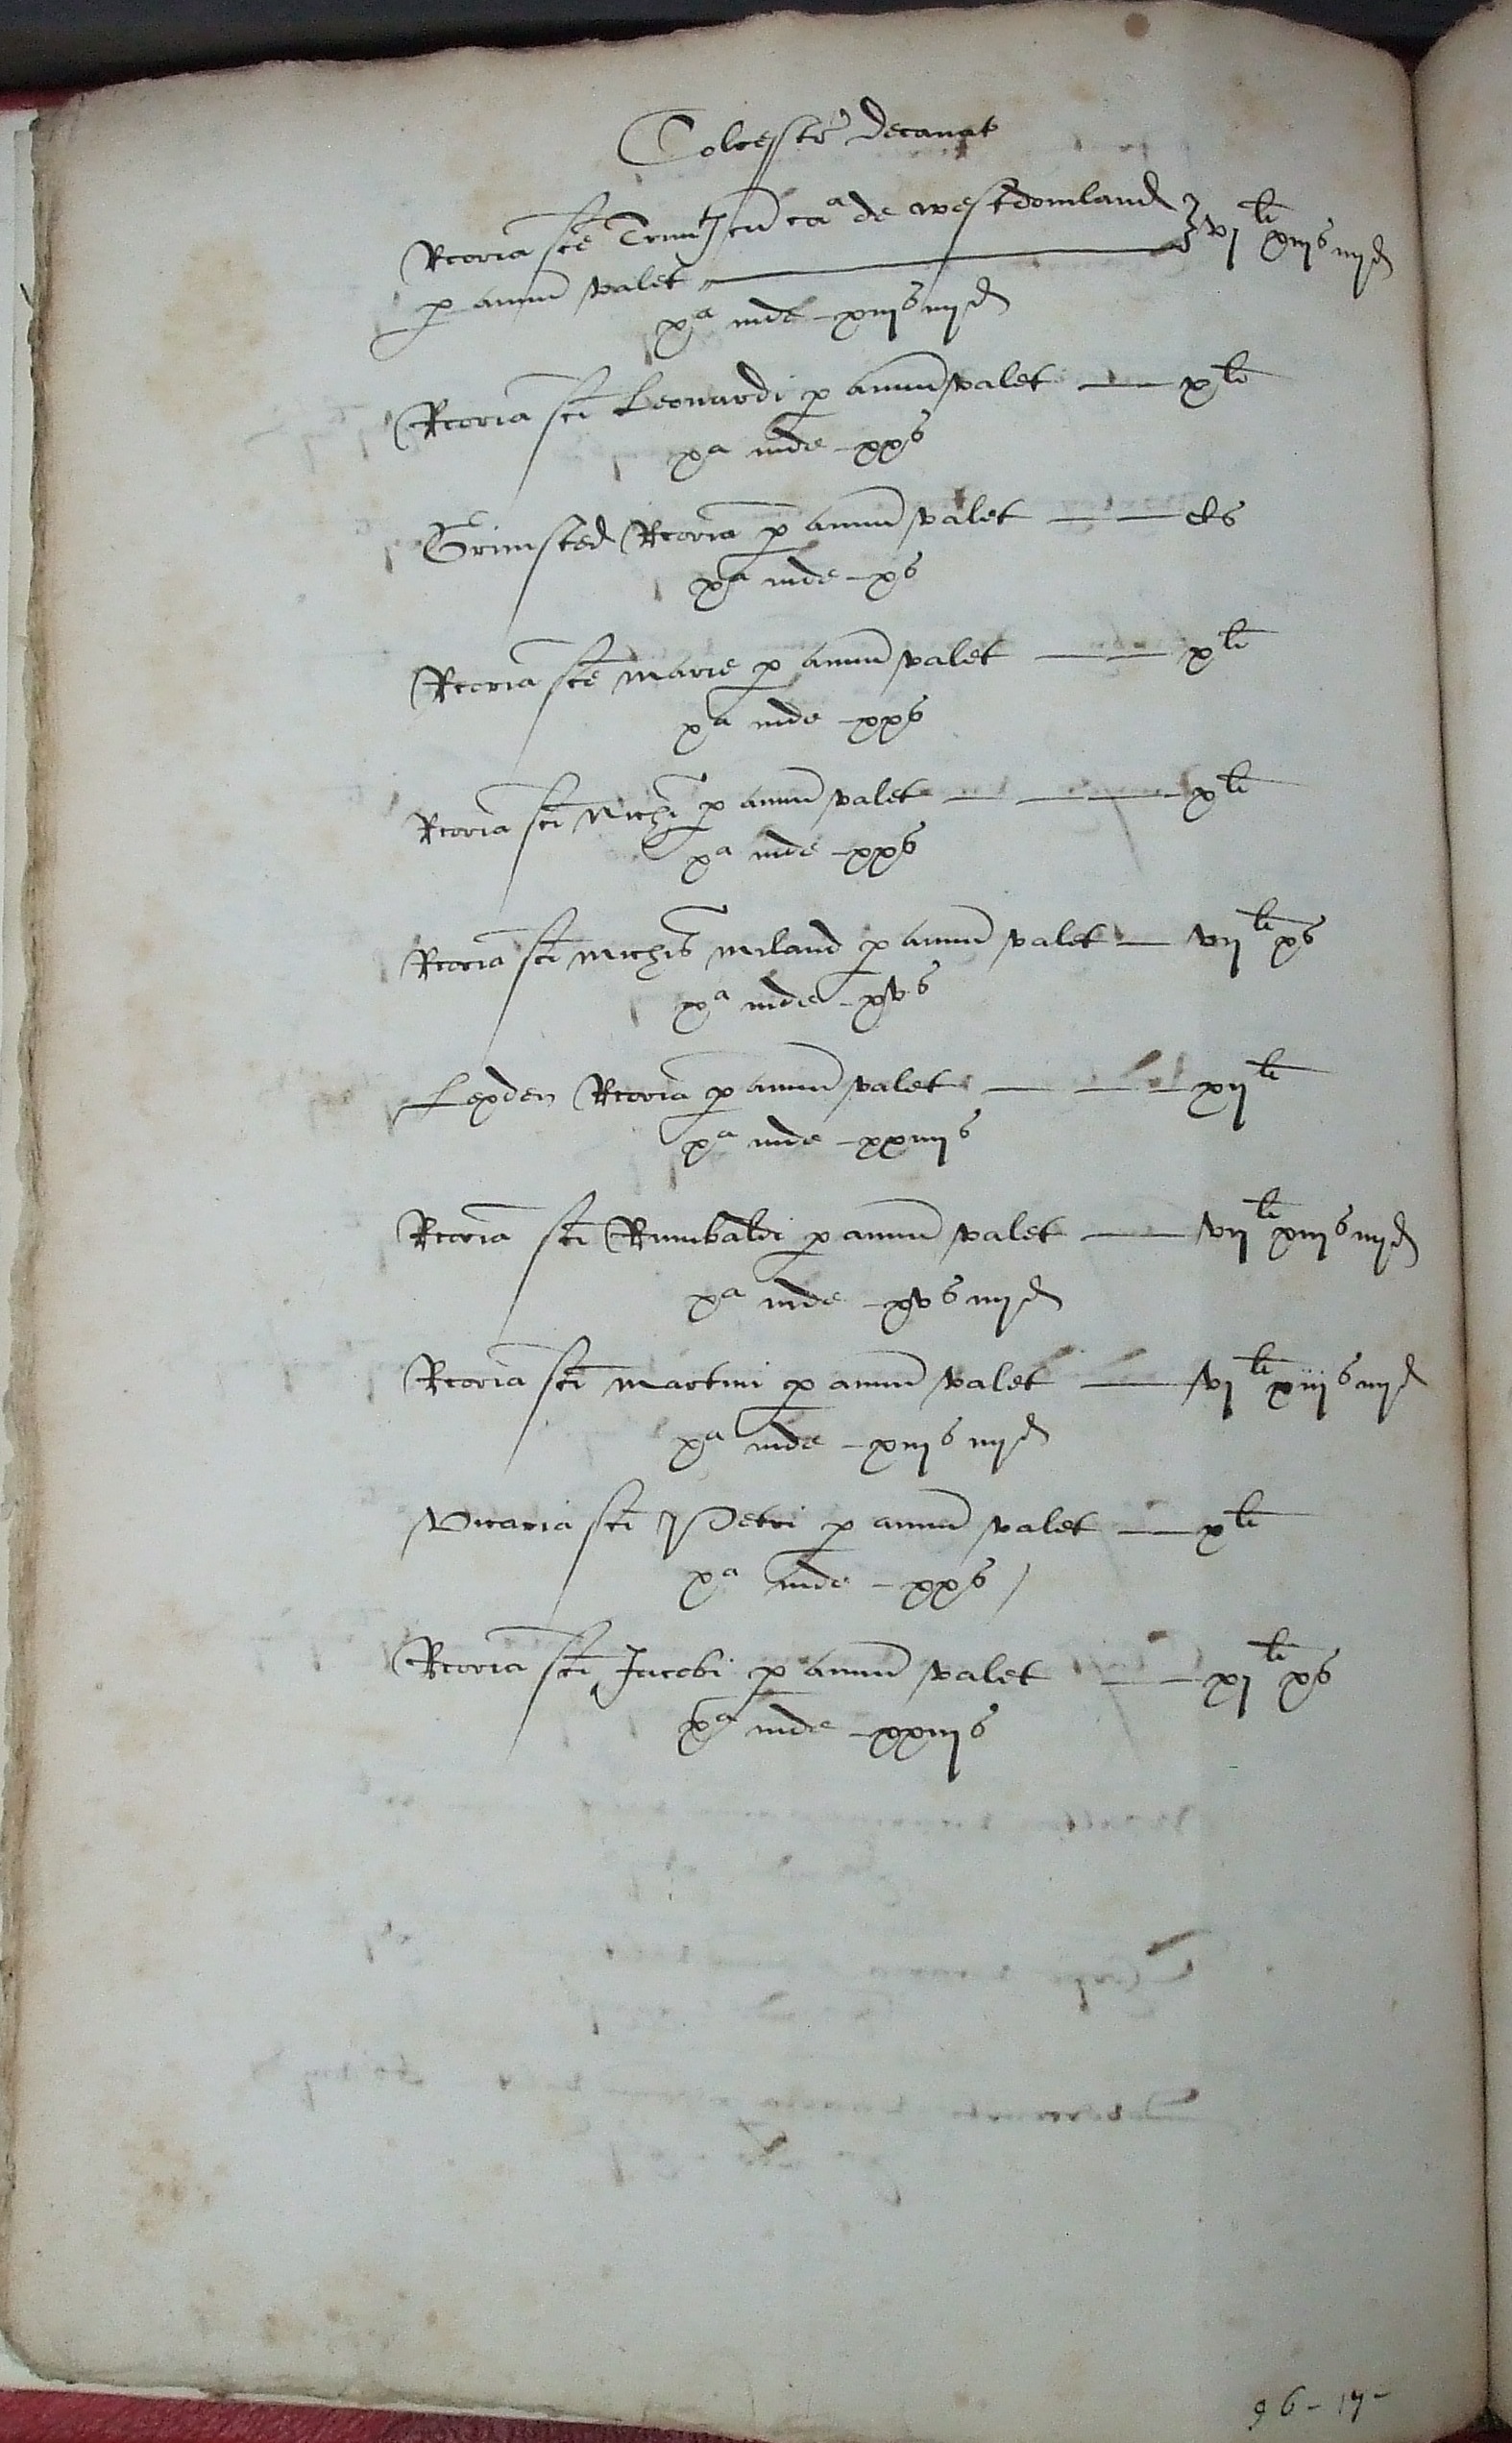 Colcestr' decanat
Rcoria sce Trinit cu ca^a de westdomland } vj^li xiij^s iiij^d
p annu valet
x^a inde - xiij^s iiij^d
Rcoria sci Leonardi p annu valet — x^li
x^a inde - xx^s
Grinsted Rcoria p annu valet — — C^s
x^a inde - x^s
Rcoria sce marie p annu valet — — x^li
x^a inde - xx^s
Rcoria sci Nichi p annu valet — — — x^li
x^a inde - xx^s
Rcoria sci Michis miland p annu valet — vij^li x^s
x^a inde - xv^s
Lexden Rcoria p annu valet — — — xij^li
x^a inde - xxiiij^s
Rcoria sci Rumbaldi p annu valet — vij^li xiij^s iiij^d
x^a inde - xv^s iiij^d
Rcoria sci martini p annu valet — vj^li xiij^s iiij^d
x^a inde - xiij^s iiij^d
Vicaria sci Petri p annu valet — x^li
x^a inde - xx^s /
Rcoria sci Jacobi p annu valet — — xj^li x^s
x^a inde - xxiij^s
96 - 17 -